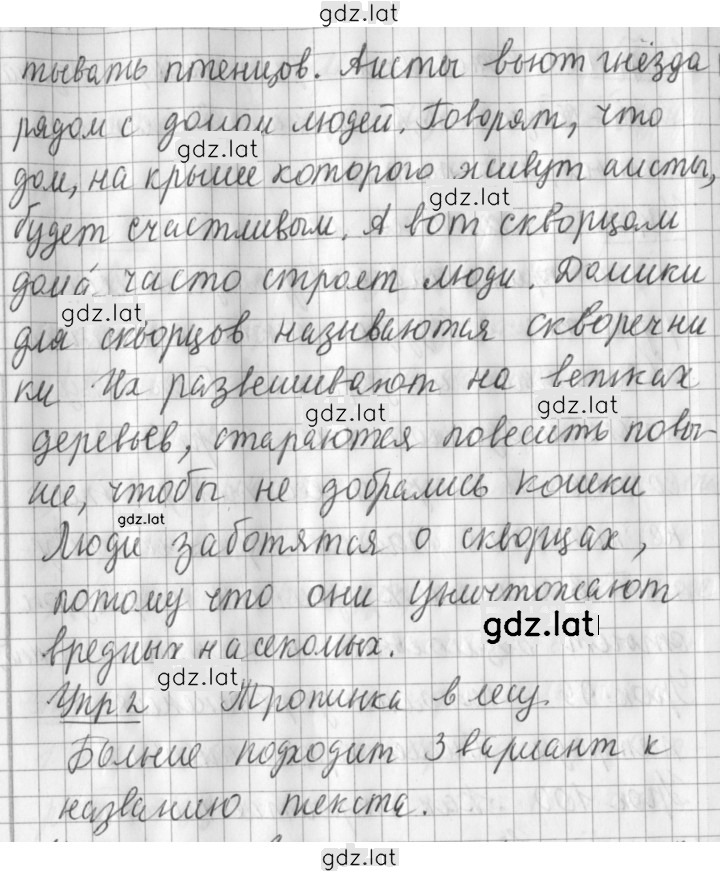 gdz.lat
тывать птенцов. Аисты вьют гнёзда
рядом с домом людей. Говорят, что
gdz.lat
дом, на крыше которого живут аисты,
gdz.lat
будет счастливым. А вот скворцам
дома́ часто строят люди. Домики
gdz.lat
для скворцов называются скворечни
ки Их развешивают на ветках
gdz.lat gdz.lat
деревьев, стараются повесить повы-
ше, чтобы не добрались кошки
gdz.lat
Люди заботятся о скворцах,
потому что они уничтожают
gdz.lat
вредных насекомых.
gdz.lat
Упр 2 Тропинка в лесу.
Больше подходит 3 вариант к
названию текста.
gdz.lat